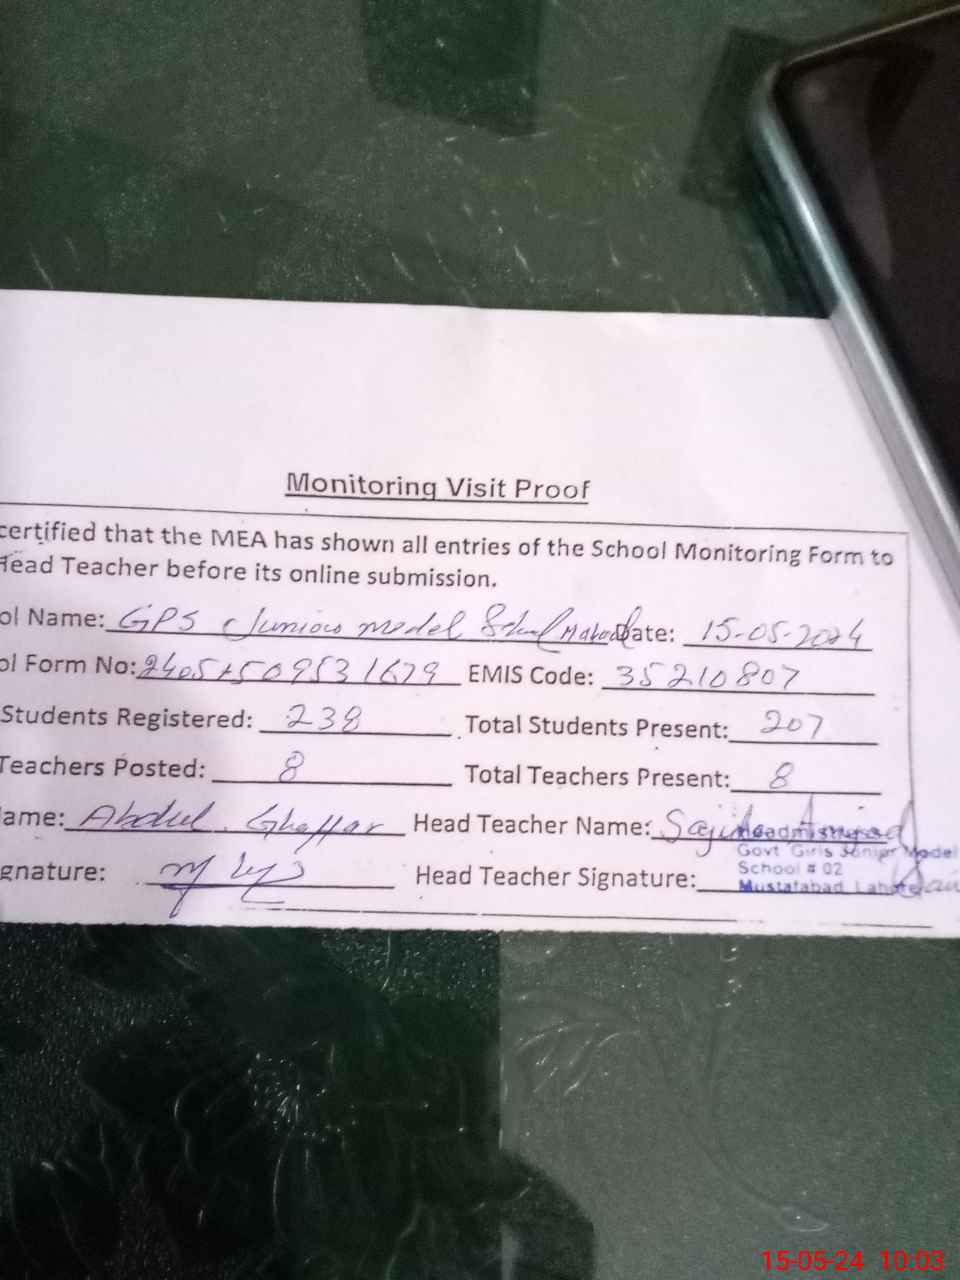 Monitoring Visit Proof
certified that the MEA has shown all entries of the School Monitoring Form to
Head Teacher before its online submission.
ol Name: GPS Junior model School Date: 15-05-2024
ol Form No: EMIS Code: 35210807
Students Registered: 238 Total Students Present: 207
Teachers Posted: 8 Total Teachers Present: 8
ame: Abdul Ghaffar Head Teacher Name:
Govt Girls Junior Model
gnature: Head Teacher Signature:
School # 02
Mustafabad Lahore
15-05-24 10:03